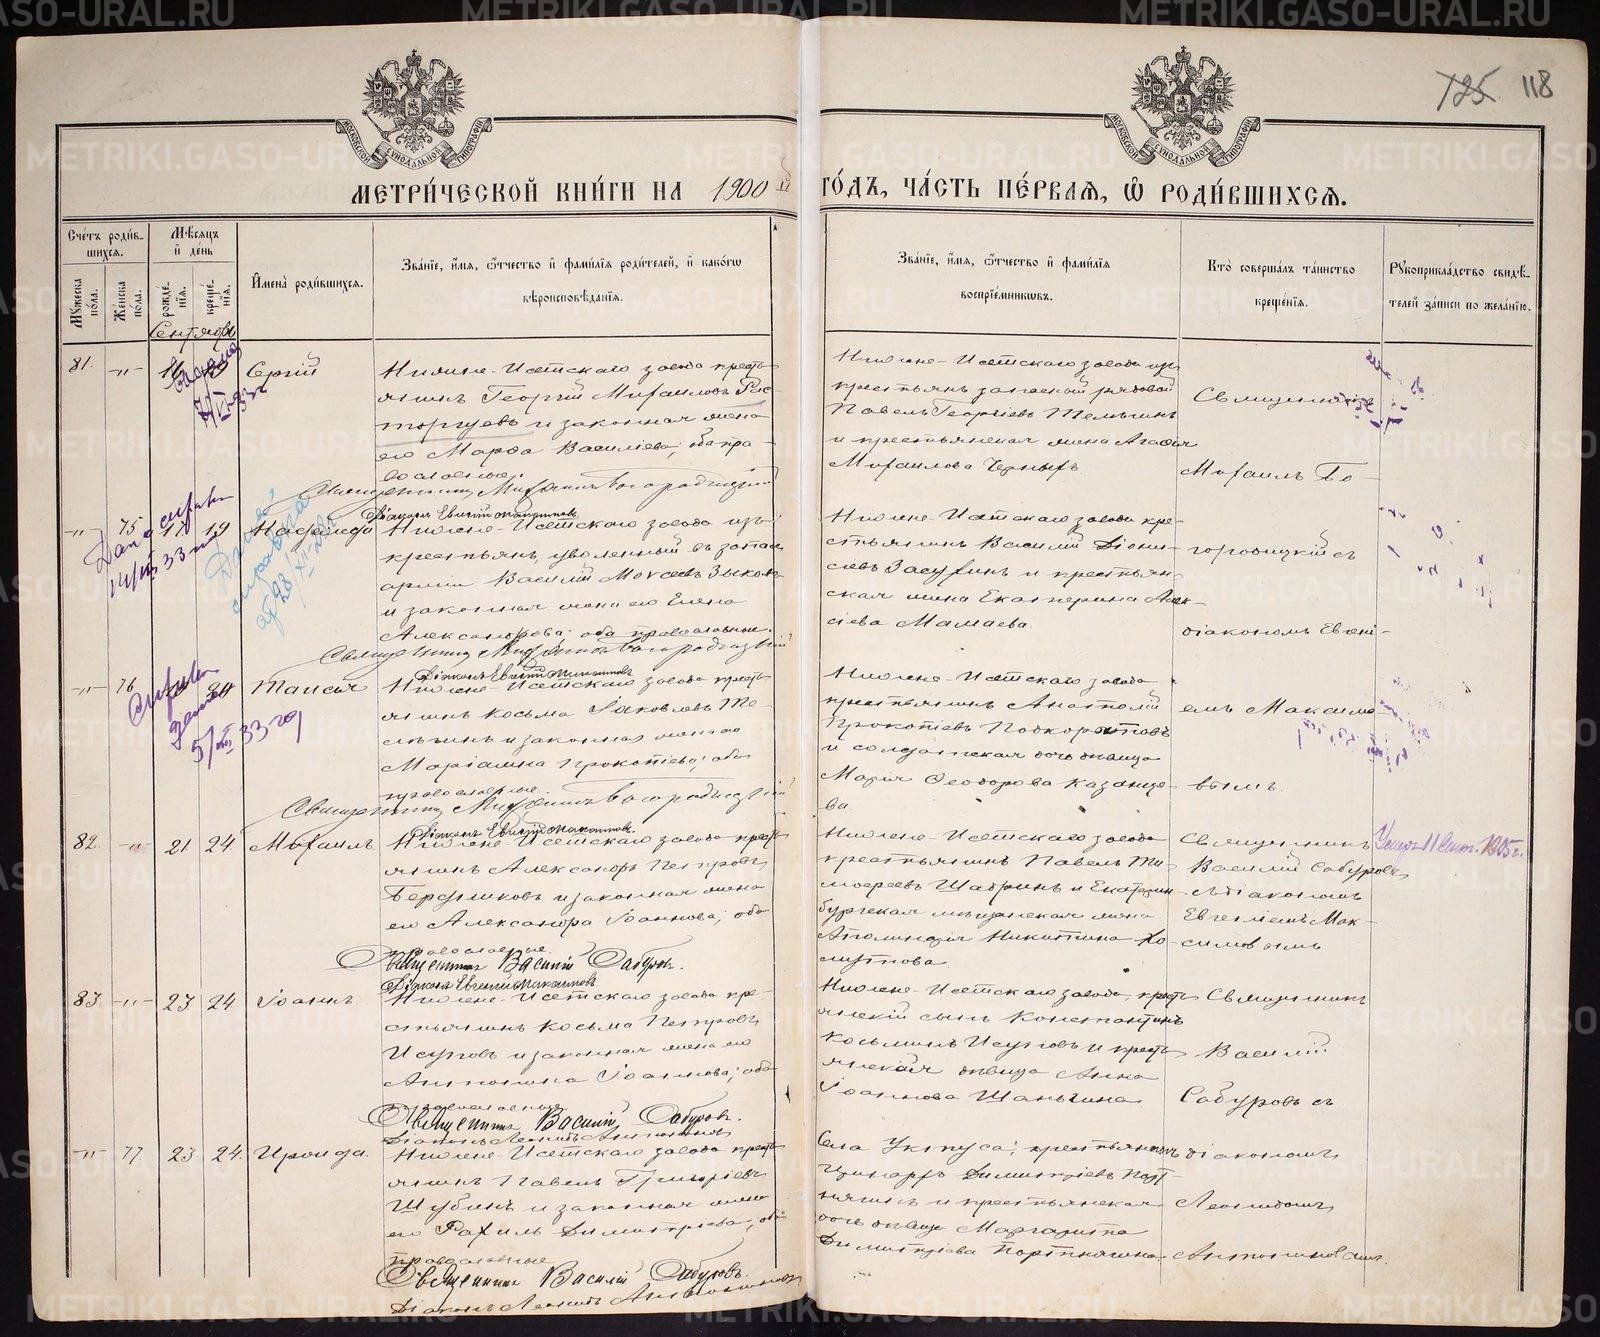 METRIKI.GASO-URAL.RU
125 118
МОСКОВСКОЙ СѴНОДАЛЬНОЙ ТИПОГРАФІИ
МЕТРИ́ЧЕСКОЙ КНИ́ГИ НА 1900 й ГО́ДЪ, ЧА́СТЬ ПЕ́РВАЯ, Ѽ РОДИ́ВШИХСЯ.
Сче́тъ роди́вшихся.
Му́жеска по́ла.
Же́нска по́ла.
Мѣ́сяцъ и҆ де́нь
рожде́нїя.
креще́нїя.
И҆мена̀ роди́вшихся.
Зва́нїе, и҆́мя, ѻ҆́тчество и҆ фами́лїя роди́телей, и҆ како́гѡ
вѣроисповѣ́данїя.
Зва́нїе, и҆́мя, ѻ҆́тчество и҆ фами́лїя
воспрїе́мникѡвъ.
Кто̀ соверша́лъ та́инство
креще́нїя.
Рꙋкоприкла́дство свидѣ́телей за́писи по жела́нїю.
Сентябрь
81. -"- 16 Сергій
Нижне-Исетскаго завода кресть
янинъ Георгій Михаиловъ Рас
торгуевъ и законная жена
его Марѳа Васильева; оба пра-
вославные.
Священникъ Михаилъ Богородицкій
Діаконъ Евгеній Максимовъ
Нижне-Исетскаго завода изъ
крестьянъ запасный рядовой
Павелъ Георгіевъ Телегинъ
и крестьянская жена Агаѳія
Михаилова Черныхъ
Священникъ
Михаилъ Бо-
-"- 75 17 19 Надежда
Нижне-Исетскаго завода изъ
крестьянъ, уволенный въ запасъ
арміи Василій Моисеевъ Зыковъ
и законная жена его Елена
Александрова; оба православные.
Священникъ Михаилъ Богородицкій
Діаконъ Евгеній Максимовъ
Нижне-Исетскаго завода кре-
стьянинъ Василій Діони-
сіевъ Засухинъ и крестьян-
ская жена Екатерина Алек-
сіева Мамаева.
городицкій съ
діакономъ Евгені-
Дана справка
Дана
справка
-"- 76 Таисія
Нижне-Исетскаго завода кресть
янинъ Косьма Іаковлевъ Те-
легинъ и законная жена его
Маріамна Прокопіева; оба
православные.
Священникъ Михаилъ Богородицкій
Діаконъ Евгеній Максимовъ
Нижне-Исетскаго завода
крестьянинъ Анатолій
Прокопіевъ Подкорытовъ
и солдатская дочь дѣвица
Марія Ѳеодорова Казанце-
ва.
емъ Максимо-
вымъ.
82. -"- 21 24 Михаилъ
Нижне-Исетскаго завода кресть
янинъ Александръ Петровъ
Бердниковъ и законная жена
его Александра Іоаннова; оба
православные.
Священникъ Василій Сабуровъ.
Діаконъ Евгеній Максимовъ
Нижне-Исетскаго завода
крестьянинъ Павелъ Ти-
моѳеевъ Шабринъ и Екатерин-
бургская мѣщанская жена
Аполинарія Никитина Хо-
мутова.
Священникъ
Василій Сабуровъ
съ діакономъ
Евгеніемъ Мак-
симовымъ
Умеръ 11 Сент. 1905 г.
83 -"- 23 24 Іоаннъ
Нижне-Исетскаго завода кре-
стьянинъ Косьма Петровъ
Исуповъ и законная жена его
Антонина Іоаннова; оба
православные
Священникъ Василій Сабуровъ.
Діаконъ Леонидъ Антониновъ
Нижне-Исетскаго завода, кресть
янскій сынъ Константинъ
Косьминъ Исуповъ и кресть
янская дѣвица Анна
Іоаннова Шаньгина
Священникъ
Василій
Сабуровъ съ
-"- 77 23 24. Ираида.
Нижне-Исетскаго завода кресть
янинъ Павелъ Григоріевъ
Шубинъ и законная жена
его Рахиль Димитріева; оба
православные
Священникъ Василій Сабуровъ.
Діаконъ Леонидъ Антониновъ
Села Уктуса; крестьянинъ
Димитріевъ Порт-
нягинъ и крестьянская
дочь дѣвица Маргарита
Димитріева Портнягина.
діакономъ
Леонидомъ
Антониновымъ.